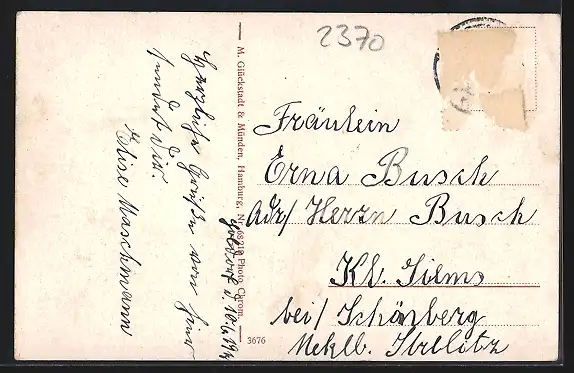 2370
Herzliche Grüße von hier
sendet Dir
Elise Maschmann
10/6 19
M. Glückstadt & Münden, Hamburg, Nr. 68210 Photo Chrom.
3676
Fräulein
Erna Busch
Adr/ Herrn Busch
Kl.
bei/ Schönberg
Meklb. Strelitz